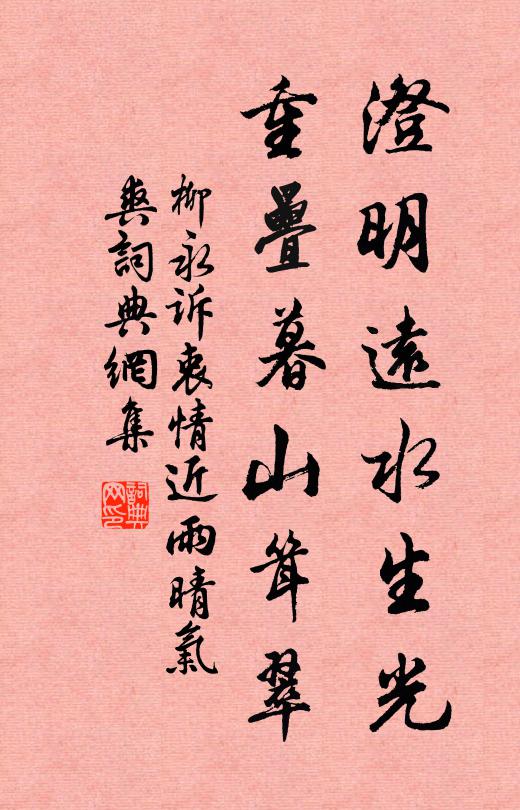 澄明遠水生光
重疊暮山耸翠
柳永诉衷情近雨晴氣
爽詞典網集
詞典网印